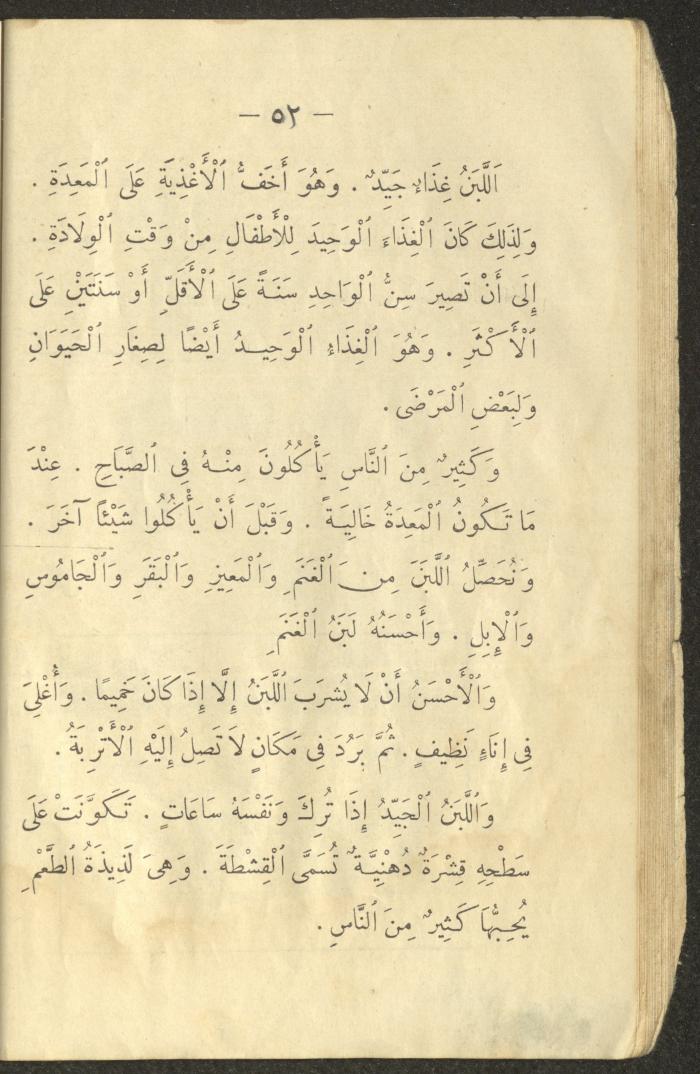 — ٥٢ —
اَللَّبَنُ غِذَاءٌ جَيِّدٌ . وَهُوَ أَخَفُّ ٱلْأَغْذِيَةِ عَلَى ٱلْمَعِدَةِ .
وَلِذَلِكَ كَانَ ٱلْغِذَاءَ ٱلْوَحِيدَ لِلْأَطْفَالِ مِنْ وَقْتِ ٱلْوِلَادَةِ .
إِلَى أَنْ تَصِيرَ سِنُّ ٱلْوَاحِدِ سَنَةً عَلَى ٱلْأَقَلِّ أَوْ سَنَتَيْنِ عَلَى
ٱلْأَكْثَرِ . وَهُوَ ٱلْغِذَاءُ ٱلْوَحِيدُ أَيْضًا لِصِغَارِ ٱلْحَيَوَانِ
وَلِبَعْضِ ٱلْمَرْضَى .
وَكَثِيرٌ مِنَ ٱلنَّاسِ يَأْكُلُونَ مِنْهُ فِى ٱلصَّبَاحِ . عِنْدَ
مَا تَكُونُ ٱلْمَعِدَةُ خَالِيَةً . وَقَبْلَ أَنْ يَأْكُلُوا شَيْئًا آخَرَ .
وَنُحَصِّلُ ٱللَّبَنَ مِنَ ٱلْغَنَمِ وَٱلْمَعِيزِ وَٱلْبَقَرِ وَٱلْجَامُوسِ
وَٱلْإِبِلِ . وَأَحْسَنُهُ لَبَنُ ٱلْغَنَمِ
وَٱلْأَحْسَنُ أَنْ لَا يُشْرَبَ ٱللَّبَنُ إِلَّا إِذَا كَانَ خَمِيمًا . وَأُغْلِىَ
فِى إِنَاءٍ نَظِيفٍ . ثُمَّ بَرُدَ فِى مَكَانٍ لَا تَصِلُ إِلَيْهِ ٱلْأَتْرِبَةُ .
وَٱللَّبَنُ ٱلْجَيِّدُ إِذَا تُرِكَ وَنَفْسَهُ سَاعَاتٍ . تَكَوَّنَتْ عَلَى
سَطْحِهِ قِشْرَةٌ دُهْنِيَّةٌ تُسَمَّى ٱلْقِشْطَةَ . وَهِىَ لَذِيذَةُ ٱلطَّعْمِ
يُحِبُّهَا كَثِيرٌ مِنَ ٱلنَّاسِ .